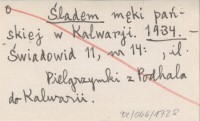 Śladem męki pań-
skiej w Kalwarji. 1934.
Światowid 11, nr 14: , il.
Pielgrzymki z Podhala
do Kalwarii.